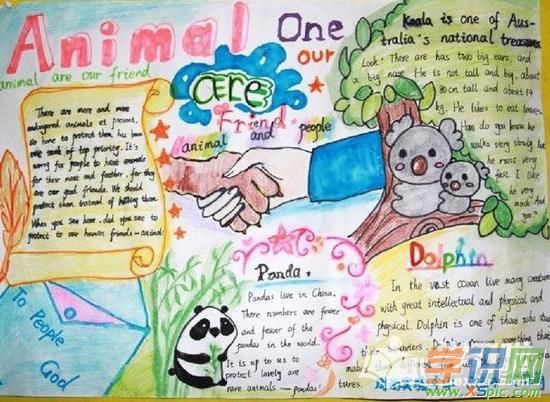 Animal
One
our
are
Friend
animal are our friend
animal and people
There are more and more
endangered animals at present,
so how to protect them has been
our work of top priority. It's
wrong for people to have animals
for their meat and feather, for they
are our good friends. We should
protect them instead of killing them.
When you see here, did you see to
protect to our human friends—animal!
To People
God
Koala is one of Aus-
tralia's national treasures
Look: There are has two big ears, and
a big nose. He is not tall and big, about
80cm tall and about 14
kg. He likes to eat leaves.
How do you know he
walks very slowly but
he runs very
fast. I like
he very
much. And
you?
Panda
Pandas live in China.
There numbers are fewer
and fewer of the
pandas in the world.
It is up to us to
protect lovely are
rare animals — pandas!
Dolphin
In the vast ocean live many creatures
with great intellectual and physical and
physical. Dolphin is one of those who
their behaviors. something that
tures.
学识网
www.xspic.com